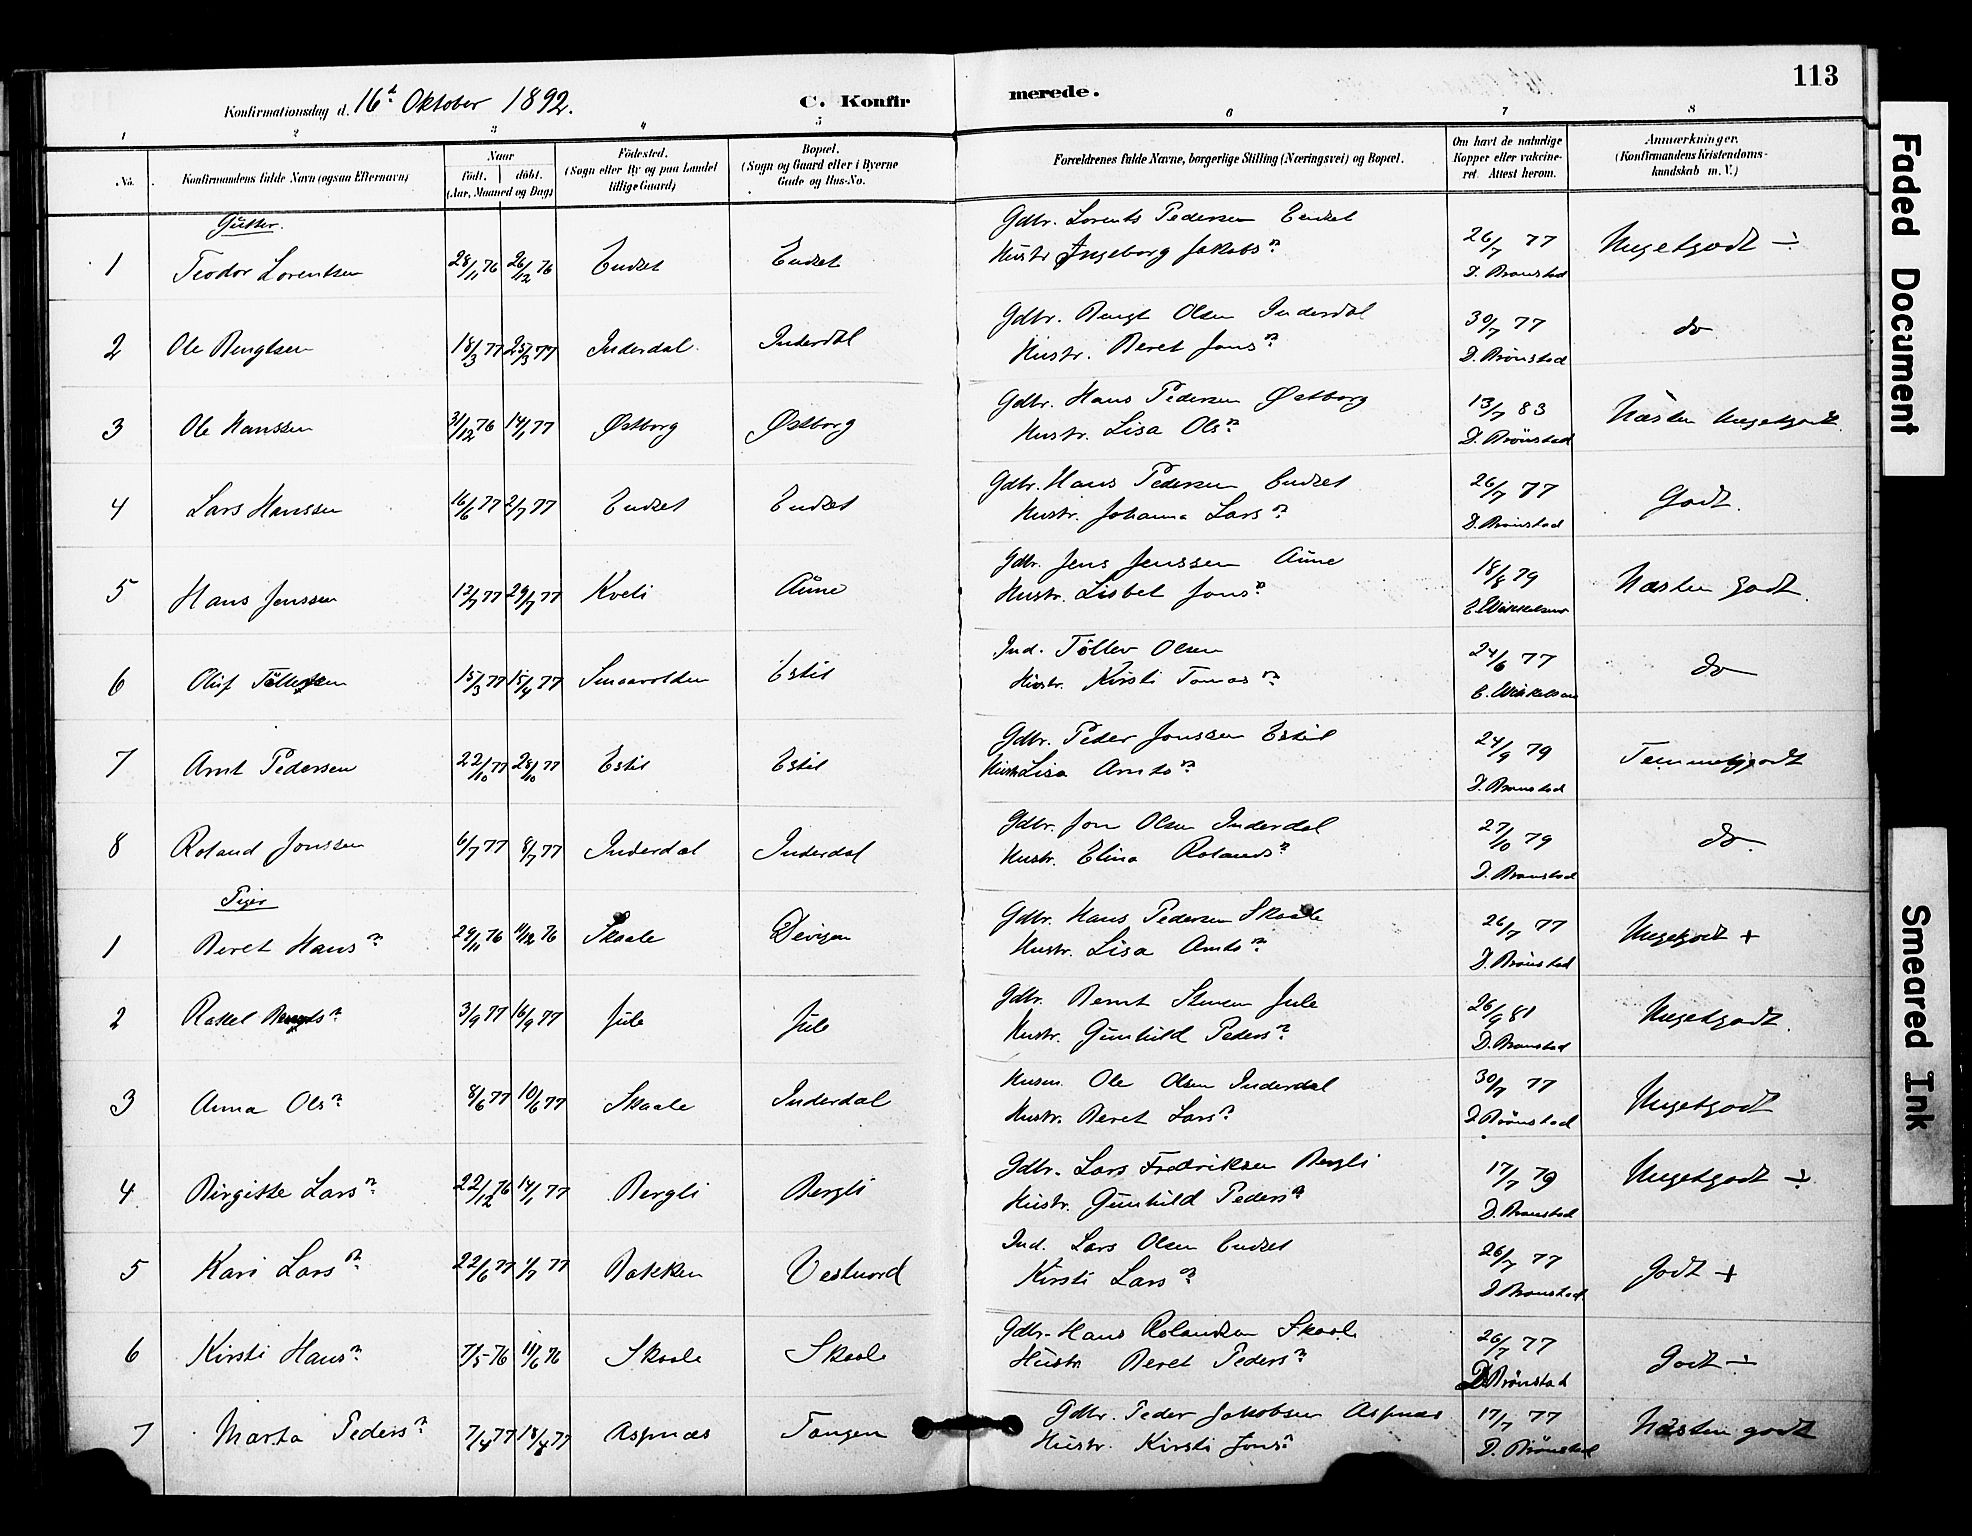 113
Konfirmationsdag d. 16de Oktober 1892.
C. Konfirmerede.
1 2 3 4 5 6 7 8
No.
Konfirmandens fulde Navn (ogsaa Efternavn)
Naar
født. døbt.
(Aar, Maaned og Dag)
Fødested.
(Sogn eller By og paa Landet
tillige Gaard)
Bopæl.
(Sogn og Gaard eller i Byerne
Gade og Hus-No.
Forældrenes fulde Navne, borgerlige Stilling (Næringsvei) og Bopæl.
Om havt de naturlige
Kopper eller vakcine-
ret. Attest herom.
Anmærkninger.
(Konfirmandens Kristendoms-
kundskab m. V.)
Gutter.
1 Teodor Lorentsen 28/11 76 26/12 76 Endset Endset Gdbr. Lorents Pedersen Endset 26/7 77 Megetgodt ÷
Hustr Ingeborg Jakobsn D. Brønstad
2 Ole Bengtsen 18/3 77 25/3 77 Inderdal Inderdal Gdbr. Bengt Olsen Inderdal 30/7 77 do
Hustr. Beret Jonsn D. Brønstad
3 Ole Hanssen 31/12 76 14/1 77 Østborg Østborg Gdbr. Hans Pedersen Østborg 13/7 83 Næsten megetgodt.
Hustr. Lisa Olsn D. Brönstad
4 Lars Hanssen 16/6 77 2/7 77 Endset Endset Gdbr. Hans Pedersen Endset 26/7 77 Godt.
Hustr. Johanna Larsn D. Brönstad
5 Hans Jenssen 12/7 77 29/7 77 Kveli Aune Gdbr. Jens Jenssen Aune 18/8 79 Næsten godt.
Hustr. Lisbet Jonsn
6 Oluf Töllefsen 15/3 77 15/4 77 Smaavolden Estil Ind. Töllev Olsen 24/6 77 do
Hustr. Kirsti Tomasn
7 Arnt Pedersen 22/10 77 28/10 77 Estil Estil Gdbr. Peder Jonssen Estil 24/9 79 Temmeliggodt
Hustr Lisa Arntsn D. Brønstad
8 Roland Jonssen 6/7 77 8/7 77 Inderdal Inderdal Gdbr. Jon Olsen Inderdal 27/10 79 do.
Hustr. Elina Rolandsn D. Brønstad
Piger
1 Beret Hansn 29/11 76 4/12 76 Skaale Devigen Gdbr. Hans Pedersen Skaale 26/7 77 Megetgodt +
Hustr. Lisa Arntsn D. Brönstad
2 Rakel Berntsn 3/9 77 16/9 77 Jule Jule Gdbr. Bernt Stensen Jule 26/9 81 Megetgodt.
Hustr. Gunhild Pedersn D. Brønstad
3 Anna Olsn 8/6 77 10/6 77 Skaale Inderdal Husm. Ole Olsen Inderdal 30/7 77 Megetgodt
Hustr. Beret Larsn D Brønstad
4. Birgitte Larsn 22/12 76 14/1 77 Bergli Bergli Gdbr. Lars Fredriksen Bergli 17/7 79 Megetgodt ÷
Hustr. Gunhild Pedersn D. Brønstad
5 Kari Larsn 22/6 77 1/7 77 Bakken Vestnord Ind. Lars Olsen Endset 26/7 77 Godt +
Kirsti Larsn D Brønstad
6 Kirsti Hansn 7/5 76 11/6 76 Skaale Skaale Gdbr. Hans Rolandsen Skaale 26/7 77 Godt ÷
Hustr Beret Pedersn D. Brönstad
7 Marta Pedersn 7/4 77 18/4 77 Aspnæs Tangen Gdbr. Peder Jakobsen Aspnæs 17/7 77 Næsten godt
Hustr. Kirsti Jonsn D. Brönstad
Faded Document
Smeared Ink